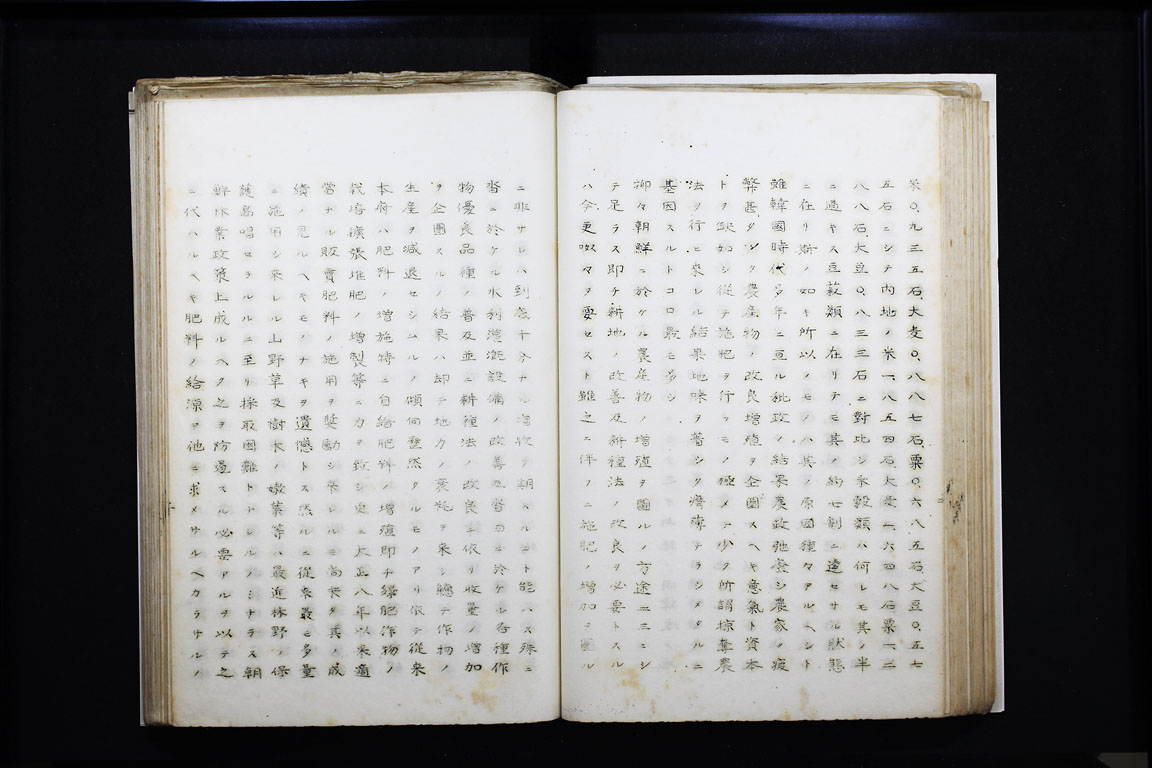 米〇、九三五石、大麦〇、八八七石、粟〇、六八五石大豆〇、五七
五石ニシテ内地ノ米一、八五四石大麦一、六四八石粟一、二
八八石大豆〇、八三三石ニ對比シ禾穀類ハ何レモ其ノ半
ニ過キス豆菽類ニ在リテモ其ノ約七割ニ達セサル狀態
ニ在リ斯ノ如キ所以ノモノハ其ノ原因種々アルヘシト
雖韓國時代多年ニ亘ル秕政ノ結果農政弛廢シ農家ノ疲
弊甚タシク農産物ノ改良増殖ヲ企圖スヘキ意氣ト資本
トヲ缺如シ從テ施肥ヲ行フモノ極メテ少ク所謂掠奪農
法ヲ行ヒ來レル結果地味ヲ著シク瘠薄ナラシメタルニ
基因スルトコロ最モ多シ
抑々朝鮮ニ於ケル農産物ノ増殖ヲ圖ルノ方途ニニシ
テ足ラス即チ耕地ノ改善及耕種法ノ改良ヲ必要トスル
ハ今更呶々ヲ要セスト雖之ニ伴フニ施肥ノ増加ヲ圖ル
ニ非サレハ到底十分ナル増收ヲ期スルコト能ハス殊ニ
沓ニ於ケル水利灌漑設備ノ改善及沓田ニ於ケル各種作
物優良品種ノ普及並ニ耕種法ノ改良ニ依リ收量ノ増加
ヲ企圖スルノ結果ハ却テ地力ノ衰耗ヲ來シ聽テ作物ノ
生産ヲ減退セシムルノ傾向歴然タルモノアリ依テ從來
本府ハ肥料ノ増施特ニ自給肥料ノ増殖即チ緑肥作物ノ
栽培擴張堆肥ノ増製等ニ力ヲ致シ更ニ大正八年以來適
當ナル販賣肥料ノ施用ヲ奬勵シ來レルモ尚未タ其ノ成
績ノ見ルヘキモノナキヲ遺憾トス然ルニ從來最モ多量
ニ施用シ來レル山野草及樹木ノ嫩葉等ハ最近林野ノ保
護高唱セラルルニ至リ採取困難トナレルノミナラス朝
鮮林業政策上成ルヘク之ヲ防遏スル必要アルヲ以テ之
ニ代ハルヘキ肥料ノ給源ヲ他ニ求メサルヘカラサルノ